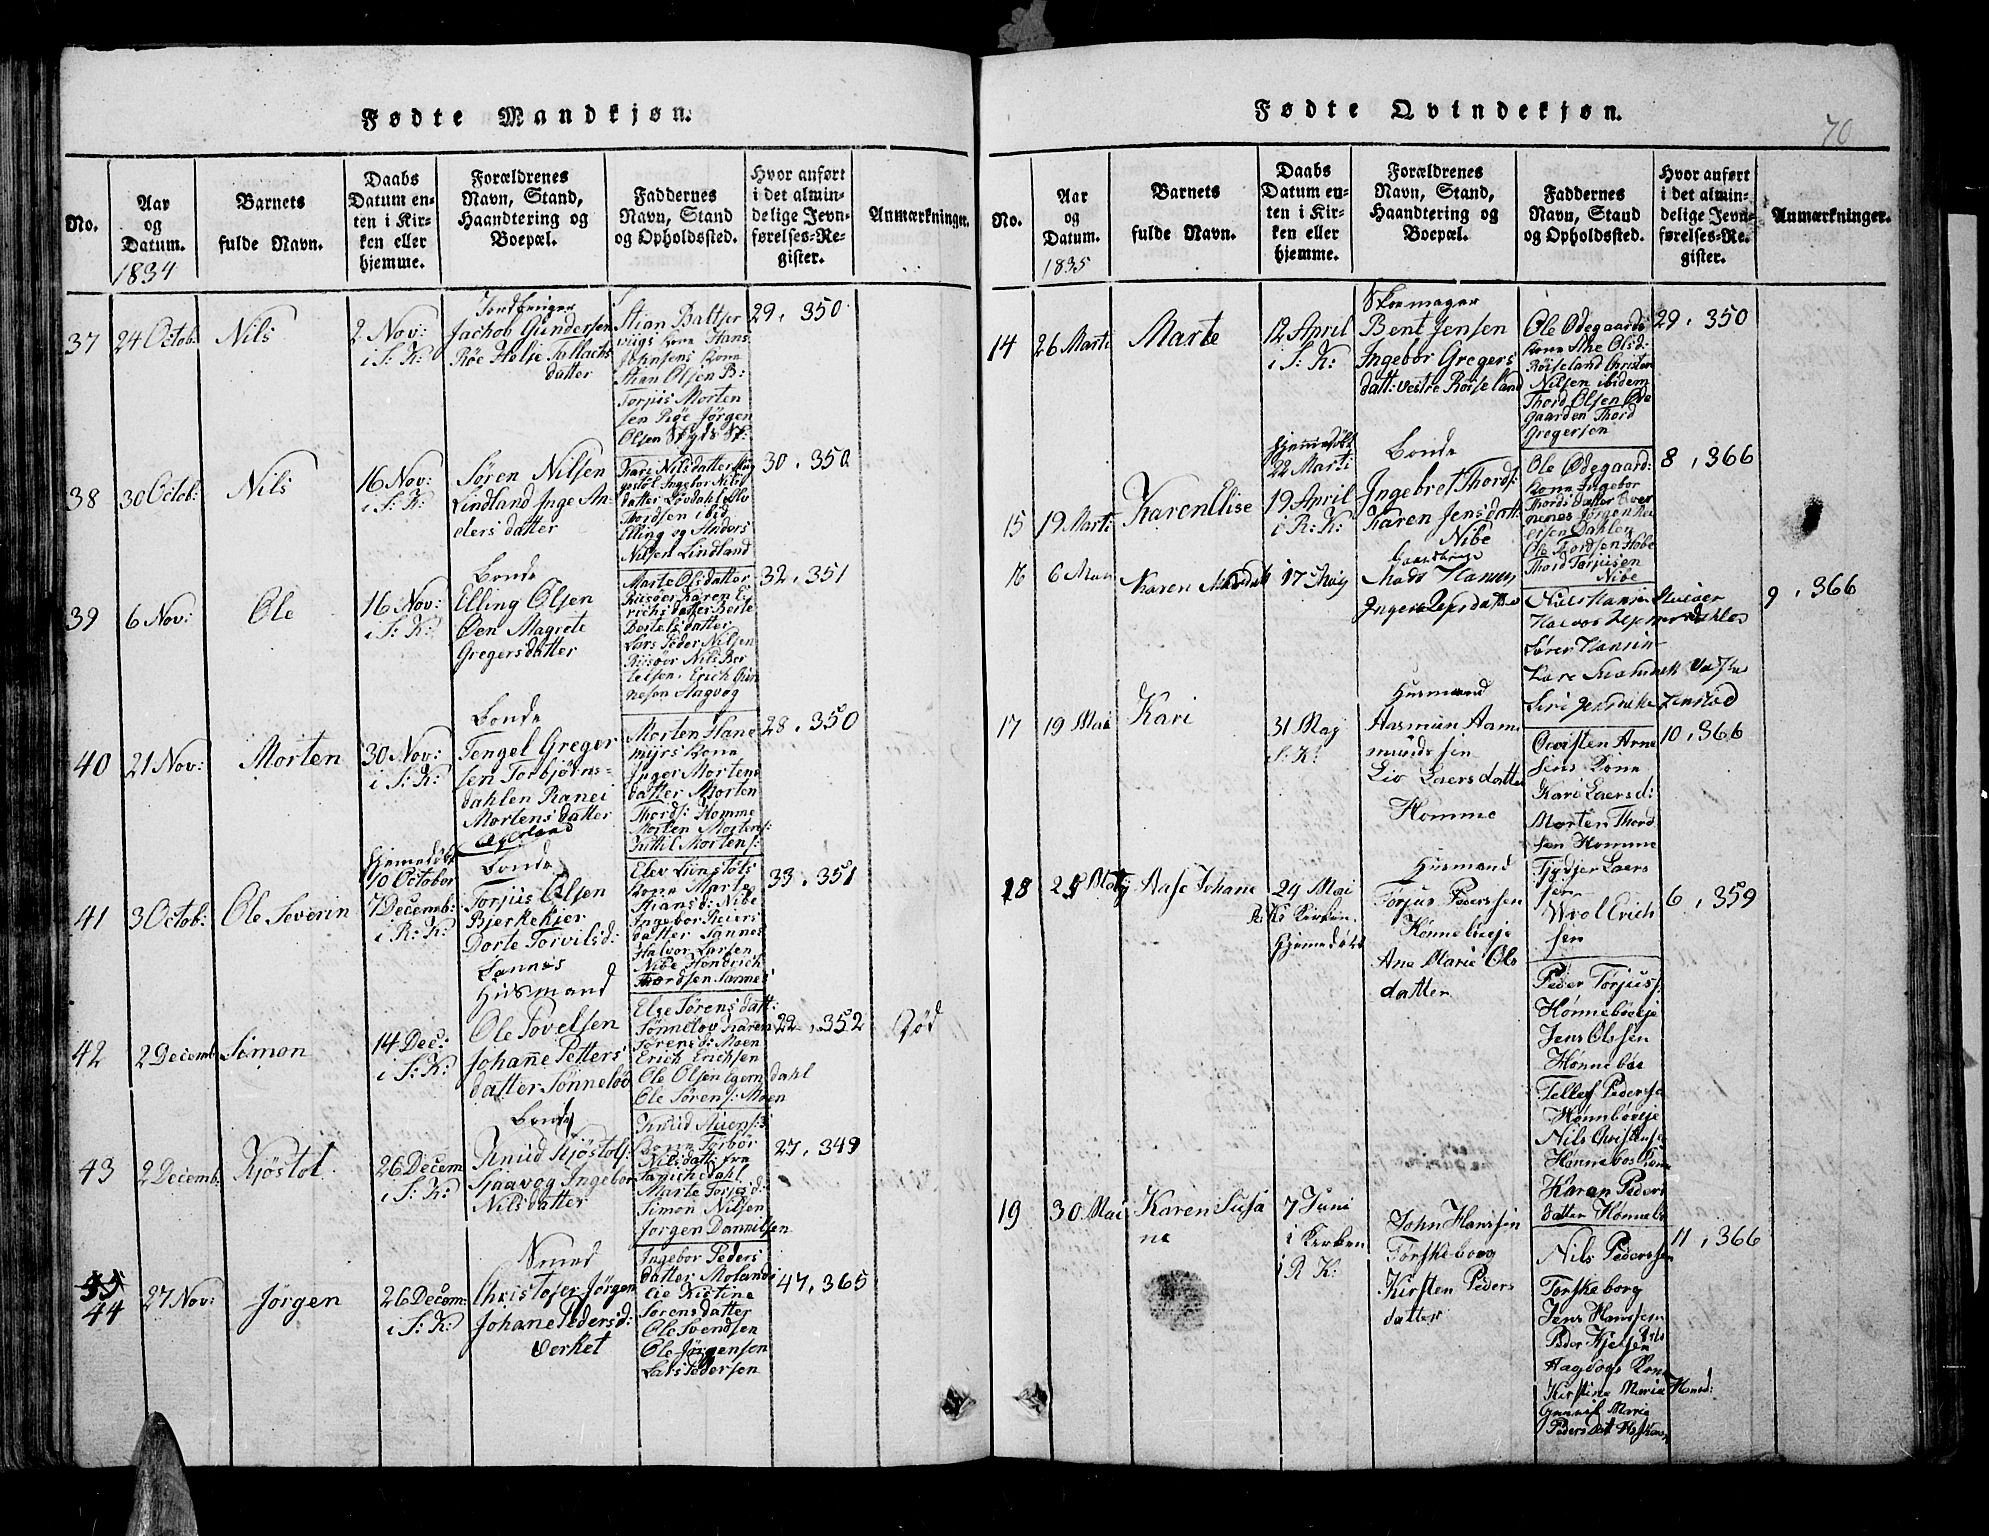 Fødte Mandkjøn.
No.
Aar
og
Datum.
1834
Barnets
fulde Navn.
Daabs
Datum en-
ten i Kir-
ken eller
hjemme.
Forældrenes
Navn, Stand,
Haandtering og
Boepæl.
Faddernes
Navn, Stand
og Opholdssted.
Hvor anført
i det almin-
delige Jevn-
førelses-Re-
gister.
Anmærkninger.
37
24 Octob:
Nils
2 Nov:
i S: K:
Jachob Gundersen
Røe Helje Tallachs
datter
Stian Baltser
Kone Hans
Johnsens Kone
Stian Olsen B:
Torjus Morten
sen Røe Jørgen
Olsen
29, 350
38
30 Octob:
Nils
16 Nov:
i S: K:
Søren Nilsen
Lindland Inge An-
dersdatter
Kari Nilsdatter
Ingebor Nils
datter Løvdahl
ibid
Elling og Anders
Nilsen Lindland
30, 350
39
6 Nov:
Ole
16 Nov:
i S: K:
Bonde
Elling Olsen
Øen Magrete
Gregersdatter
Marte Olsdatter
Riisøer Karen E-
richsdatter Berte
Bertelsdatter
Lars Peder Nilsen
Riisøer Nils Ber
telsen. Erich Gun
nesen Aagvog
32, 351
40
21 Nov:
Morten
30 Nov:
i S: K:
Bonde
Tengel Greger
sen Torbjørns-
dahlen Ranei
Mortensdatter
Morten Hane
myrs Kone
Inger Mortens
datter Morten
Thords: Homme
Morten Mortens:
Kittil Mortens:
28, 350
41
3 Octob:
Ole Severin
Hjemedøbt
10 October
7 Decemb:
i R: K:
Bonde
Torjus Olsen
Bjerkekjer
Dorte Torvilsd:
Sannes
Elev Livestøls
Kone Marte
Stiansd: Nibe
Ingebor Reiers
datter Sannes
Halvor Larsen
Nibe Hendrich
Thordsen Sannes
33, 351
42
2 Decemb
Simon
14 Dec:
i S: K:
Husmand
Ole Povelsen
Johanne Petters
datter Sønneløv
Else Sørensdatt:
Sønneløv Karen
Sørensd: Moen
Erich Erichsen
Ole Olsen Egernsdahl
Ole Sørens: Moen
22, 352
Død
43
2 Decemb.
Kjøstol
26 Decem
i S: K:
Bonde
Knud Kjøstols:
Sjaavog Ingebor
Nilsdatter
Kone Torbor
Nilsdatt: fra
Marte Torjesd:
Simon Nilsen
Jørgen Dannilsen
27, 349
44
27 Nov:
Jørgen
26 Decem:
i S: K:
Smed
Christofer Jørgen
Johane Pedersd:
Verket
Ingebor Peders
datter Moland
Kistine
Sørensdatter
Ole Svendsen
Ole Jørgensen
Lars Pedersen
47, 365
Fødte Qvindekjøn.
70
No.
Aar
og
Datum.
1835
Barnets
fulde Navn.
Daabs
Datum en-
ten i Kir-
ken eller
hjemme.
Forældrenes
Navn, Stand,
Haandtering og
Boepæl.
Faddernes
Navn, Stand
og Opholdssted.
Hvor anført
i det almin-
delige Jevn-
førelses-Re-
gister.
Anmærkninger.
14
26 Marti
Marte
12 April
i S: K:
Skomager
Bent Jensen
Ingebor Gregers
datt: vestre Røiseland
Ole Ødegaards
Kone Olsd:
Røiseland Christen
Nilsen ibidem
Thord Olsen Øde
gaarden Thord
Gregersen
29, 350
15
19 Marti
Karen Elise
Hjemmedøbt
22 Marti
19 April
i R: K:
Bonde
Ingebret Thords:
Karen Jensdatt:
Nibe
Ole Ødegaard:
Kone Ingebor
Thordsdatter
Jørgen
Dahlen
Ole Thordsen Hobe
Thord Torjusen
Nibe
8, 366
16
6 Maij
Karen
17 Maij
Mads Hansen
Niels Hansen
Søren Hansen
9, 366
17
19 Mai
Kari
31 Maj
S: K:
Husmand
Aasmun Aam
mundssen
Liv Laersdatter
Homme
Qvisten Arne
sens Kone
Kari Laersd:
Morten Thord
sen Homme
Tydjer Laers
sen
Wroldrich
sen
10, 366
18
25 Maij
Aase Johane
24 Mai
Kirken
Hjemedøbt
Husmand
Torjus Pederssen
Hønneboeje
Ane Marie Ols
datter
Peder Torjuss:
Hønneboeje
Jens Olssen
Hønneboe
Tellef Pederssen
Hønneboeje
Nils
Hønneboes Kone
Karen Peders
datter Hønnebo
6, 359
19
30 Mai
Karen Susa
ne
7 Juni
i Kirken
i R K:
John Hanssen
Torskeborg
Kirsten Peders
datter
Nils Pederssen
Torskeborg
Jens Hanssen
Peder
Kone
Kirstine Maria Hansd:
Marie
11, 366